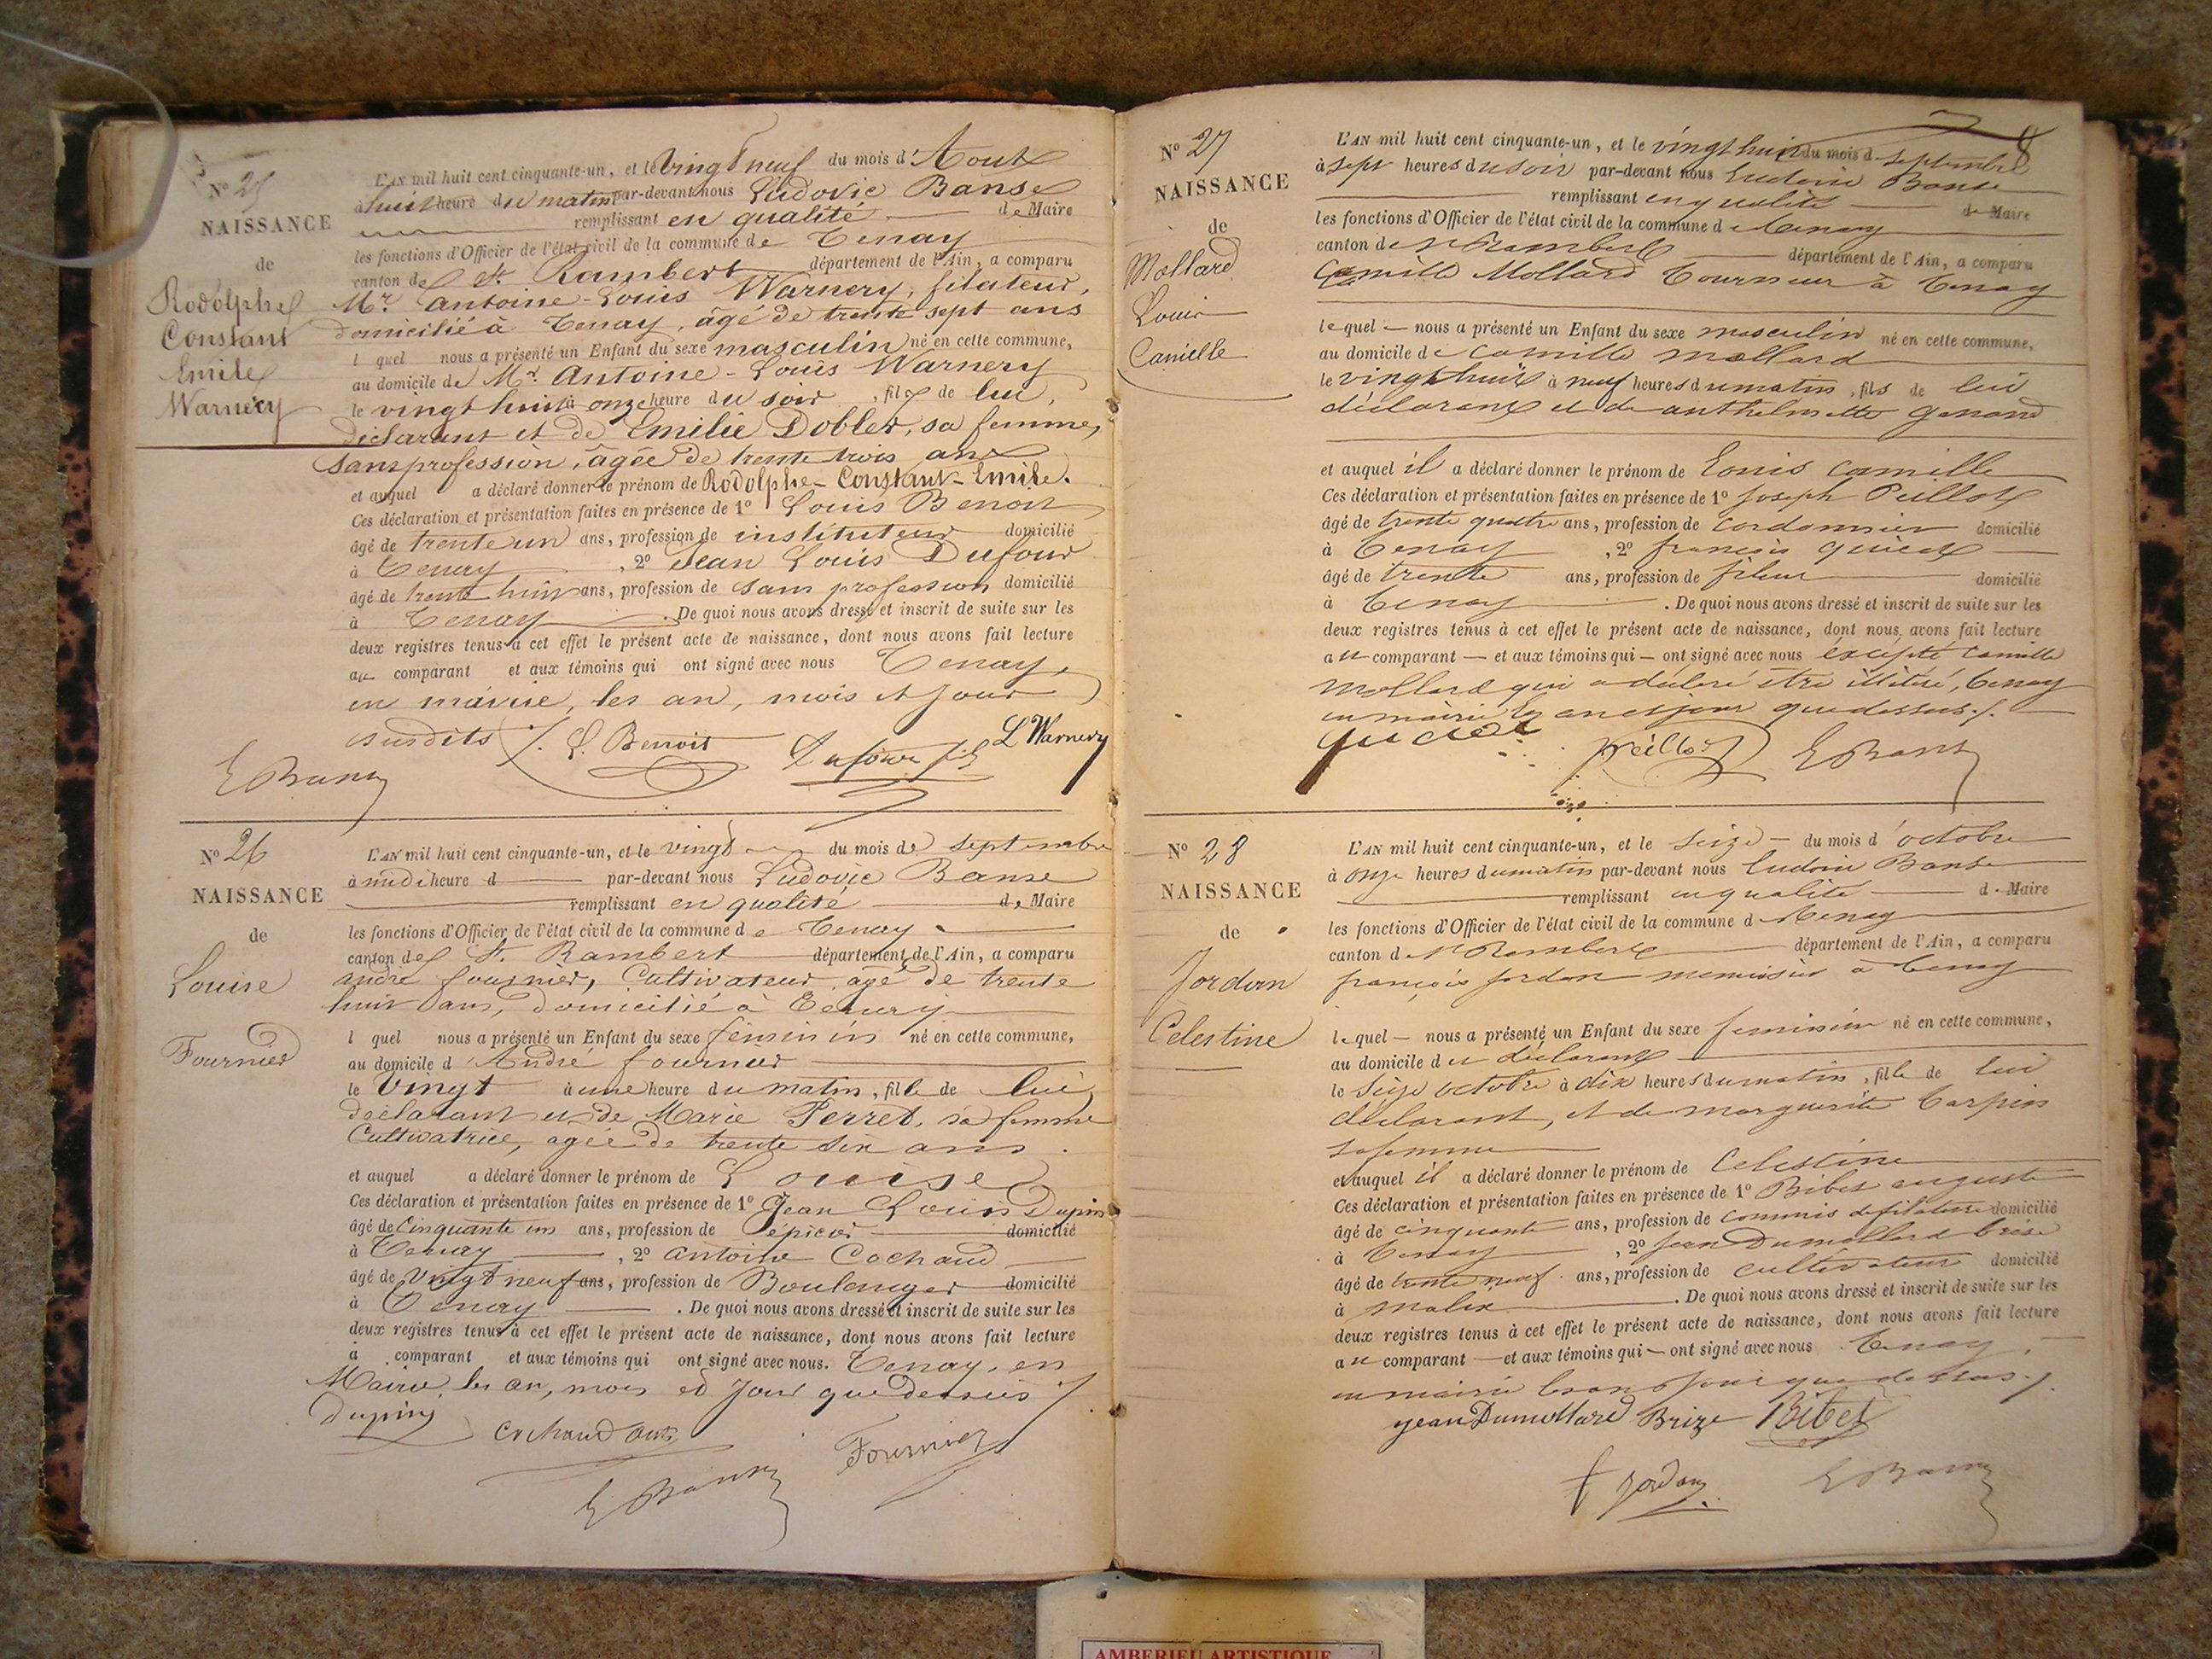 Nº 25
NAISSANCE
de
Rodolphe
Constant
Emile
Warnery
L'AN mil huit cent cinquante-un, et le vingt neuf du mois d'Aout
à huit heure du matin par-devant nous Ludovic Banse
remplissant en qualité de Maire
les fonctions d'Officier de l'état civil de la commune de Tenay
canton de St. Rambert département de l'Ain, a comparu
Mr. Antoine-Louis Warnery, filateur,
domicilié à Tenay, âgé de trente sept ans
l quel nous a présenté un Enfant du sexe masculin né en cette commune,
au domicile de Mr. Antoine-Louis Warnery
le vingt huit à onze heure du soir, fils de lui,
déclarant et de Emilie Dobler, sa femme,
sans profession, âgée de trente trois ans
et auquel a déclaré donner le prénom de Rodolphe-Constant-Emile.
Ces déclaration et présentation faites en présence de 1º Louis Benoit
âgé de trente un ans, profession de instituteur domicilié
à Tenay, 2º Jean Louis Dufour
âgé de trente huit ans, profession de sans profession domicilié
à Tenay. De quoi nous avons dressé et inscrit de suite sur les
deux registres tenus à cet effet le présent acte de naissance, dont nous avons fait lecture
au comparant et aux témoins qui ont signé avec nous Tenay,
en mairie, les an, mois et jour
susdits /. L. Benoit Dufour L Warnery
L Banse
Nº 26
NAISSANCE
de
Louise
Fournier
L'AN mil huit cent cinquante-un, et le vingt du mois de septembre
à midi heure d par-devant nous Ludovic Banse
remplissant en qualité de Maire
les fonctions d'Officier de l'état civil de la commune de Tenay
canton de St. Rambert département de l'Ain, a comparu
André fournier, Cultivateur, âgé de trente
huit ans, domicilié à Tenay
l quel nous a présenté un Enfant du sexe féminin né en cette commune,
au domicile d'André fournier
le vingt à une heure du matin, fille de lui
déclarant et de Marie Perret, sa femme
Cultivatrice, agée de trente six ans.
et auquel a déclaré donner le prénom de Louise
Ces déclaration et présentation faites en présence de 1º Jean Louis Dupin
âgé de Cinquante un ans, profession de épicier domicilié
à Tenay, 2º antoine Cochaud
âgé de vingt neuf ans, profession de Boulenger domicilié
à Tenay. De quoi nous avons dressé et inscrit de suite sur les
deux registres tenus à cet effet le présent acte de naissance, dont nous avons fait lecture
à comparant et aux témoins qui ont signé avec nous. Tenay, en
Mairie, les an, mois et Jour que dessus /
Dupin Cochaud Fournier
L Banse
Nº 27
NAISSANCE
de
Mollard
Louis
Camille
8
L'AN mil huit cent cinquante-un, et le vingt huit du mois de septembre
à sept heures du soir par-devant nous Ludovic Banse
remplissant en qualité de Maire
les fonctions d'Officier de l'état civil de la commune de Tenay
canton de St Rambert département de l'Ain, a comparu
Camille Mollard Tourneur à Tenay
lequel nous a présenté un Enfant du sexe masculin né en cette commune,
au domicile de camille mollard
le vingt huit à neuf heures du matin, fils de lui
déclarant et de anthelmette genand
et auquel il a déclaré donner le prénom de Louis camille
Ces déclaration et présentation faites en présence de 1º Joseph
âgé de trente quatre ans, profession de cordonnier domicilié
à Tenay, 2º françois
âgé de trente ans, profession de fileur domicilié
à Tenay. De quoi nous avons dressé et inscrit de suite sur les
deux registres tenus à cet effet le présent acte de naissance, dont nous avons fait lecture
au comparant et aux témoins qui ont signé avec nous excepté camille
mollard qui a déclaré être illiteré, Tenay
en mairie les an et jour que dessus /.
L Banse
Nº 28
NAISSANCE
de
Jordan
Celestine
L'AN mil huit cent cinquante-un, et le seize du mois d'octobre
à onze heures du matin par-devant nous Ludovic Banse
remplissant en qualité de Maire
les fonctions d'Officier de l'état civil de la commune de Tenay
canton de St Rambert département de l'Ain, a comparu
françois jordan menuisier à Tenay
lequel nous a présenté un Enfant du sexe feminin né en cette commune,
au domicile du déclarant
le seize octobre à dix heures du matin, fille de lui
déclarant, et de marguerite Carpin
sa femme
et auquel il a déclaré donner le prénom de Celestine
Ces déclaration et présentation faites en présence de 1º Bibet auguste
âgé de cinquante ans, profession de commis de filature domicilié
à Tenay, 2º jean Dumollard brise
âgé de trente neuf ans, profession de cultivateur domicilié
à malix. De quoi nous avons dressé et inscrit de suite sur les
deux registres tenus à cet effet le présent acte de naissance, dont nous avons fait lecture
au comparant et aux témoins qui ont signé avec nous. Tenay,
en mairie les an et jour que dessus /.
jean Dumollard Brize Bibet
f jordan L Banse
AMBERIEU ARTISTIQUE